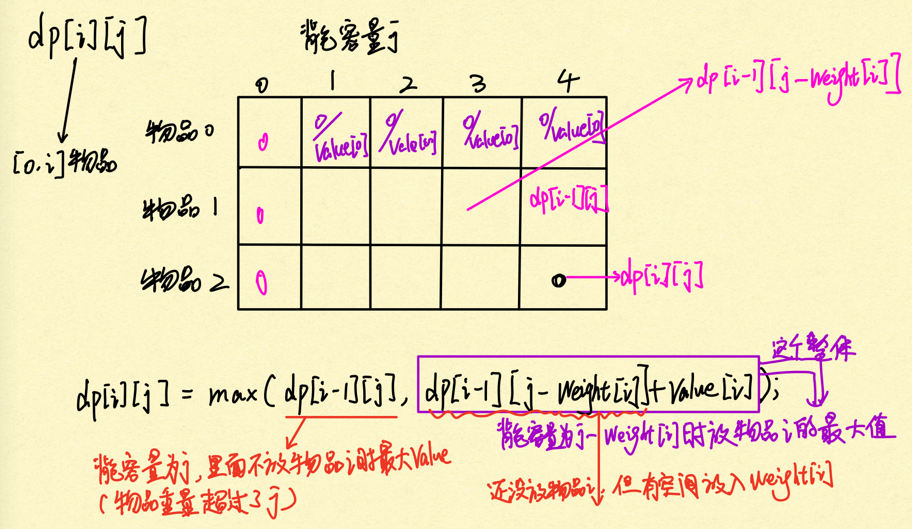 dp[i][j]
背包容量j
[0,i]物品
0 1 2 3 4
dp[i-1][j-Weight[i]]
物品0 0 0/Value[0] 0/Vale[0] 0/Value[0] 0/Value[0]
物品1 0 dp[i-1][j]
物品2 0 dp[i][j]
这个整体
dp[i][j] = max(dp[i-1][j], dp[i-1][j-Weight[i]]+Value[i]);
背包容量为j-Weight[i]时放物品i的最大值
背包容量为j,里面不放物品i时最大Value
(物品重量超过了j)
还没放物品i,但有空间放入Weight[i]